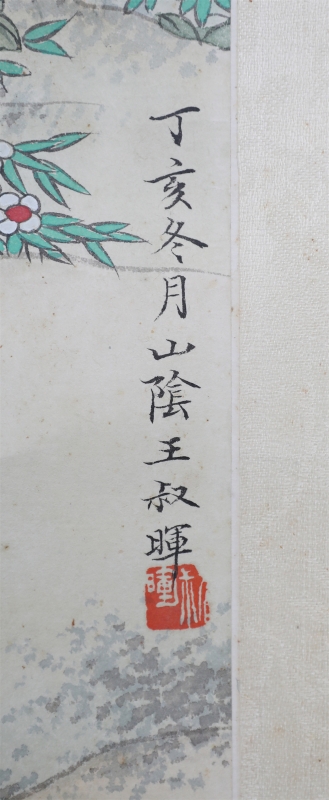 丁亥冬月山陰王叔暉
叔暉